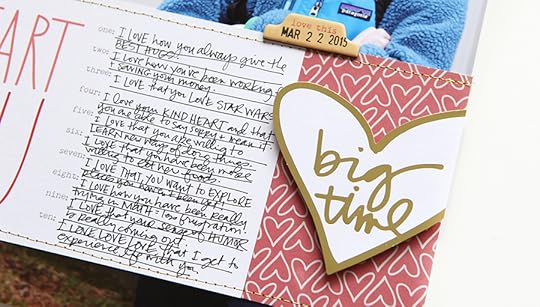 patagonia
love this
MAR 22 2015
EART
U
one: I LOVE how you always give the
BEST HUGS!
two: I LOVE how you've been working
+ SAVING your money.
three: I LOVE that you LOVE STAR WARS
four: I love your KIND HEART and that
five: you're able to say SORRY + mean it
I LOVE that you are willing to
six: LEARN new ways of doing things.
I LOVE that you have been more
seven: willing to eat new foods.
I LOVE THAT you want to EXPLORE
eight: places you haven't been yet!
I LOVE how you have been really
nine: trying in MATH + less frustration!
I LOVE that your sense of HUMOR
ten: is really coming out.
I LOVE LOVE LOVE that I get to
experience life with you.
big
time